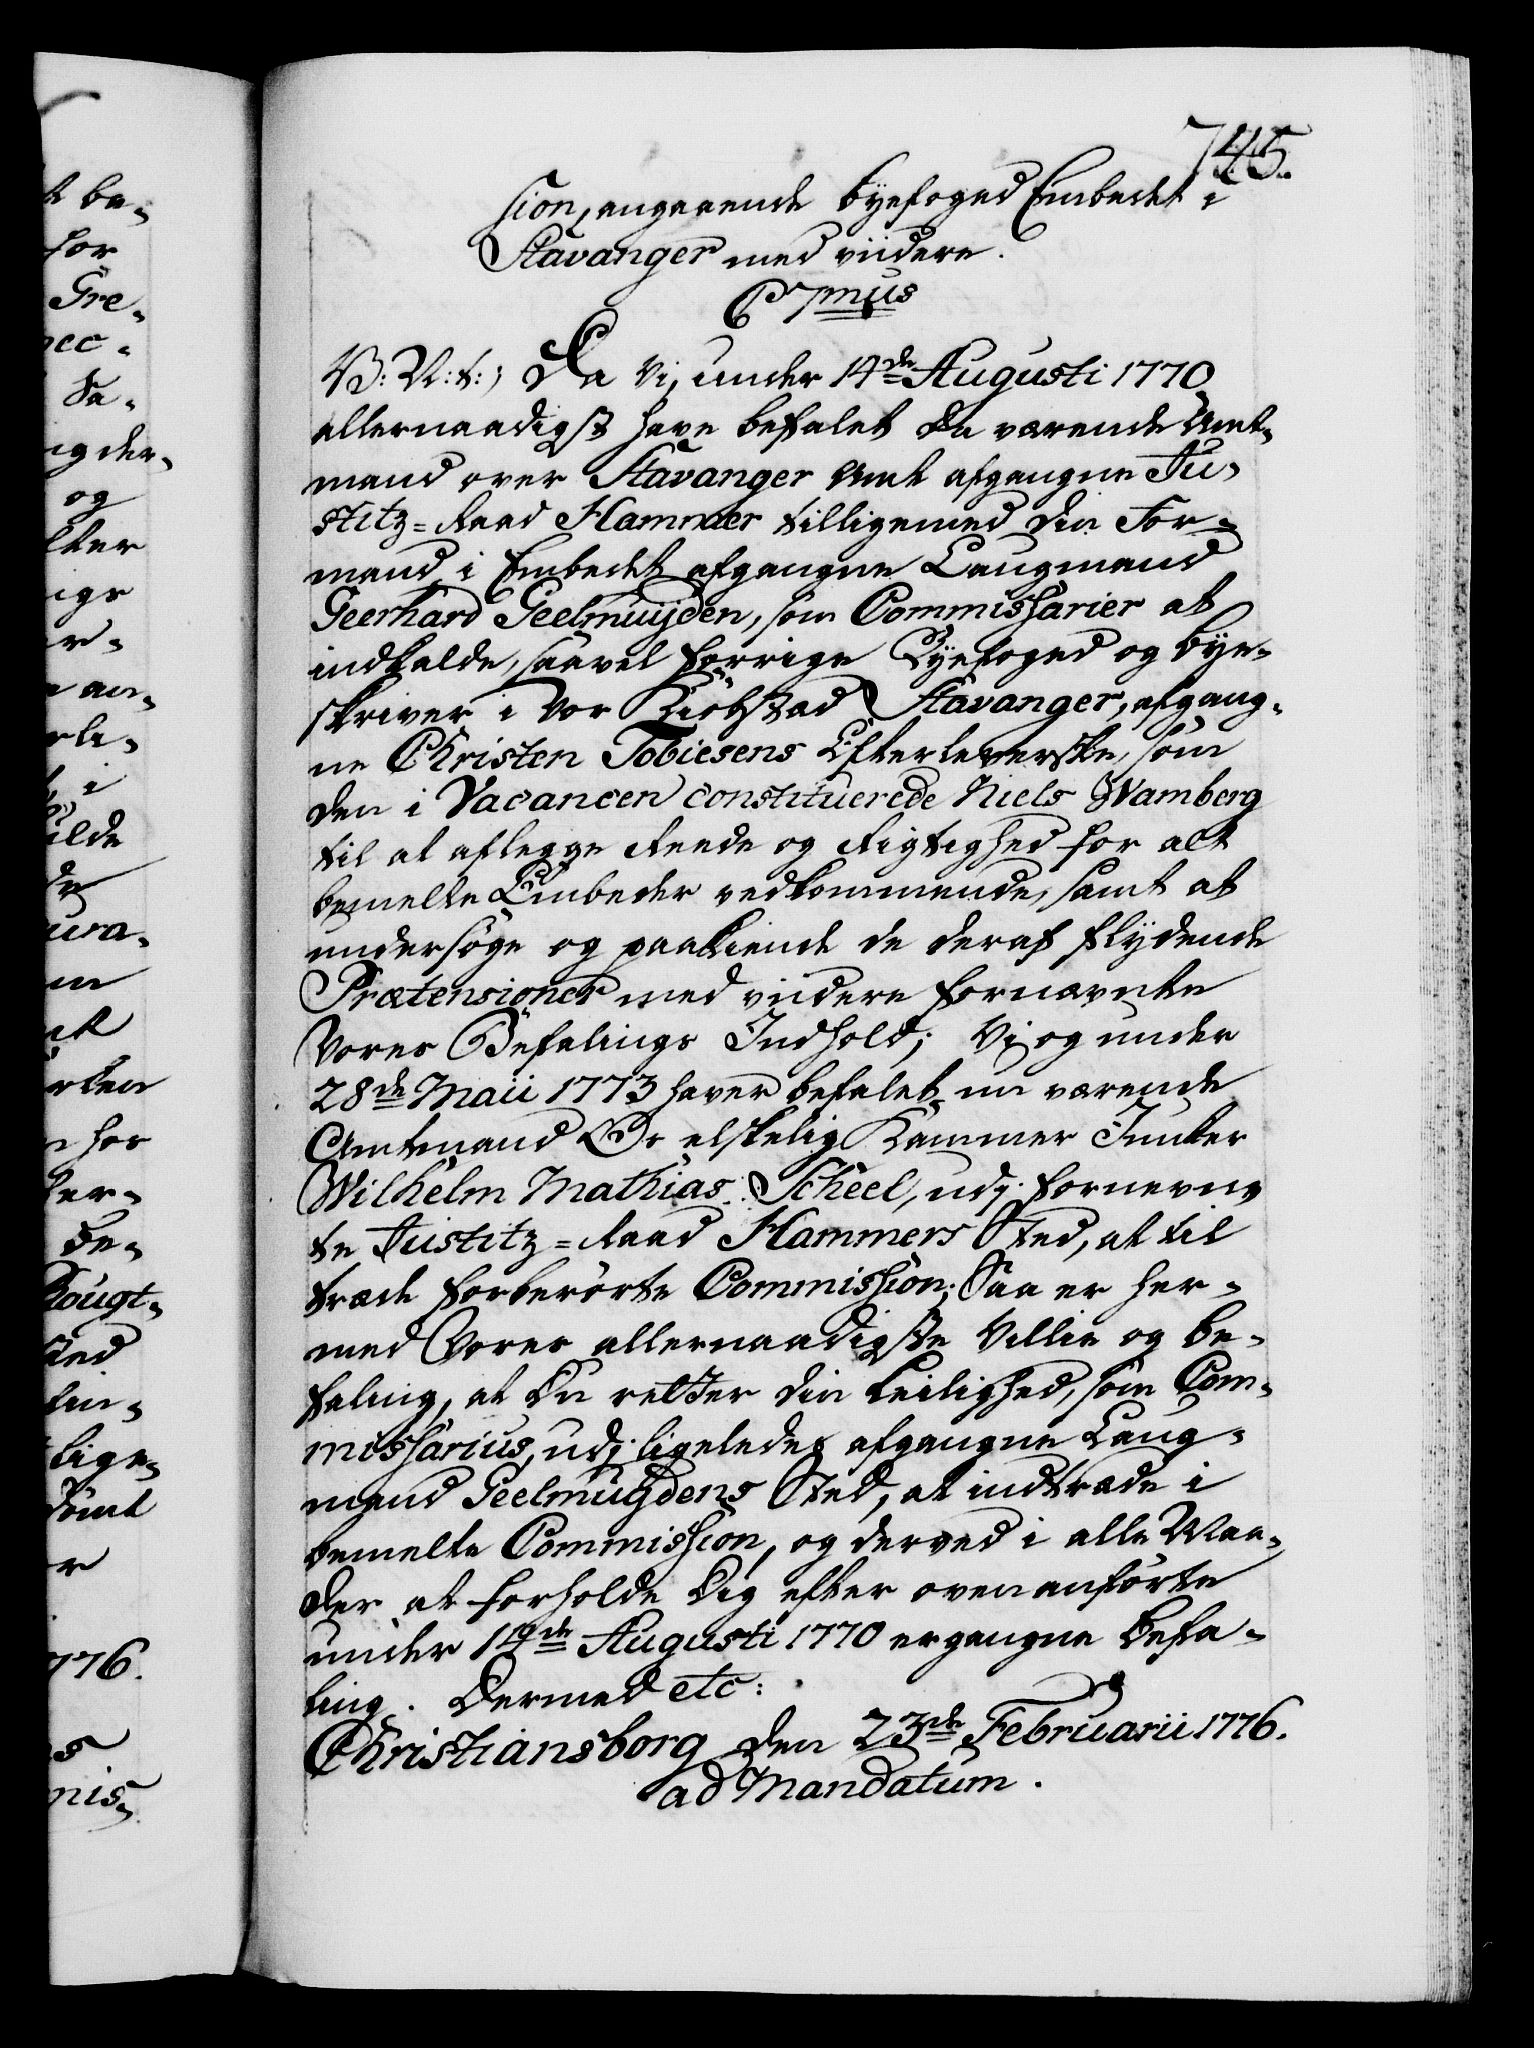 745.
sion, angaaende Byefoged Embedet i
Stavanger med viidere.
C 7mus
V: V: t:; Da Vi, under 14de Augusti 1770
allernaadigst have befalet da værende Amt-
mand over Stavanger Amt afgangne Ju-
stitz-Raad Hammer tilligemed din For-
mand i Embedet afgangne Laugmand
Geerhard Geelmuijden, som Commissarier at
indkalde, saavel forrige Byefoged og Bye-
skriver i Vor Kiøbstad Stavanger, afgang-
ne Christen Tobiesens Efterleverske, som
den i Vacancen constituerede Niels Wamberg
til at aflegge Reede og Rigtighed for alt
bemelte Embeder vedkommende, samt at
undersøge og paakiende de deraf flydende
Prætensioner med viidere fornævnte
Vores Befalings Indhold; Vi og under
28de Maii 1773 haver befalet nu værende
Amtmand Os elskelig Kammer Junker
Wilhelm Mathias Scheel, udj fornevn-
te Justitz-Raad Hammers Sted, at til
træde forberørte Commission; Saa er her-
med Vores allernaadigste Villie og Be-
faling, at Du retter din Leilighed, som Com-
missarius, udj ligeledes afgangne Laug-
mand Geelmuydens Sted, at indtræde i
bemelte Commission, og derved i alle Maa-
der at forholde Dig efter ovenanførte
under 14de Augusti 1770 ergangne Befa-
ling. Dermed etc:
Christiansborg den 23de Februarii 1776.
ad Mandatum.
t be-
for
Gre-
Sa-
ig der-
og
lter
er-
an-
i
ulde
for
ter-
De-
Kougt-
lige-
dømt
1776.
mis-